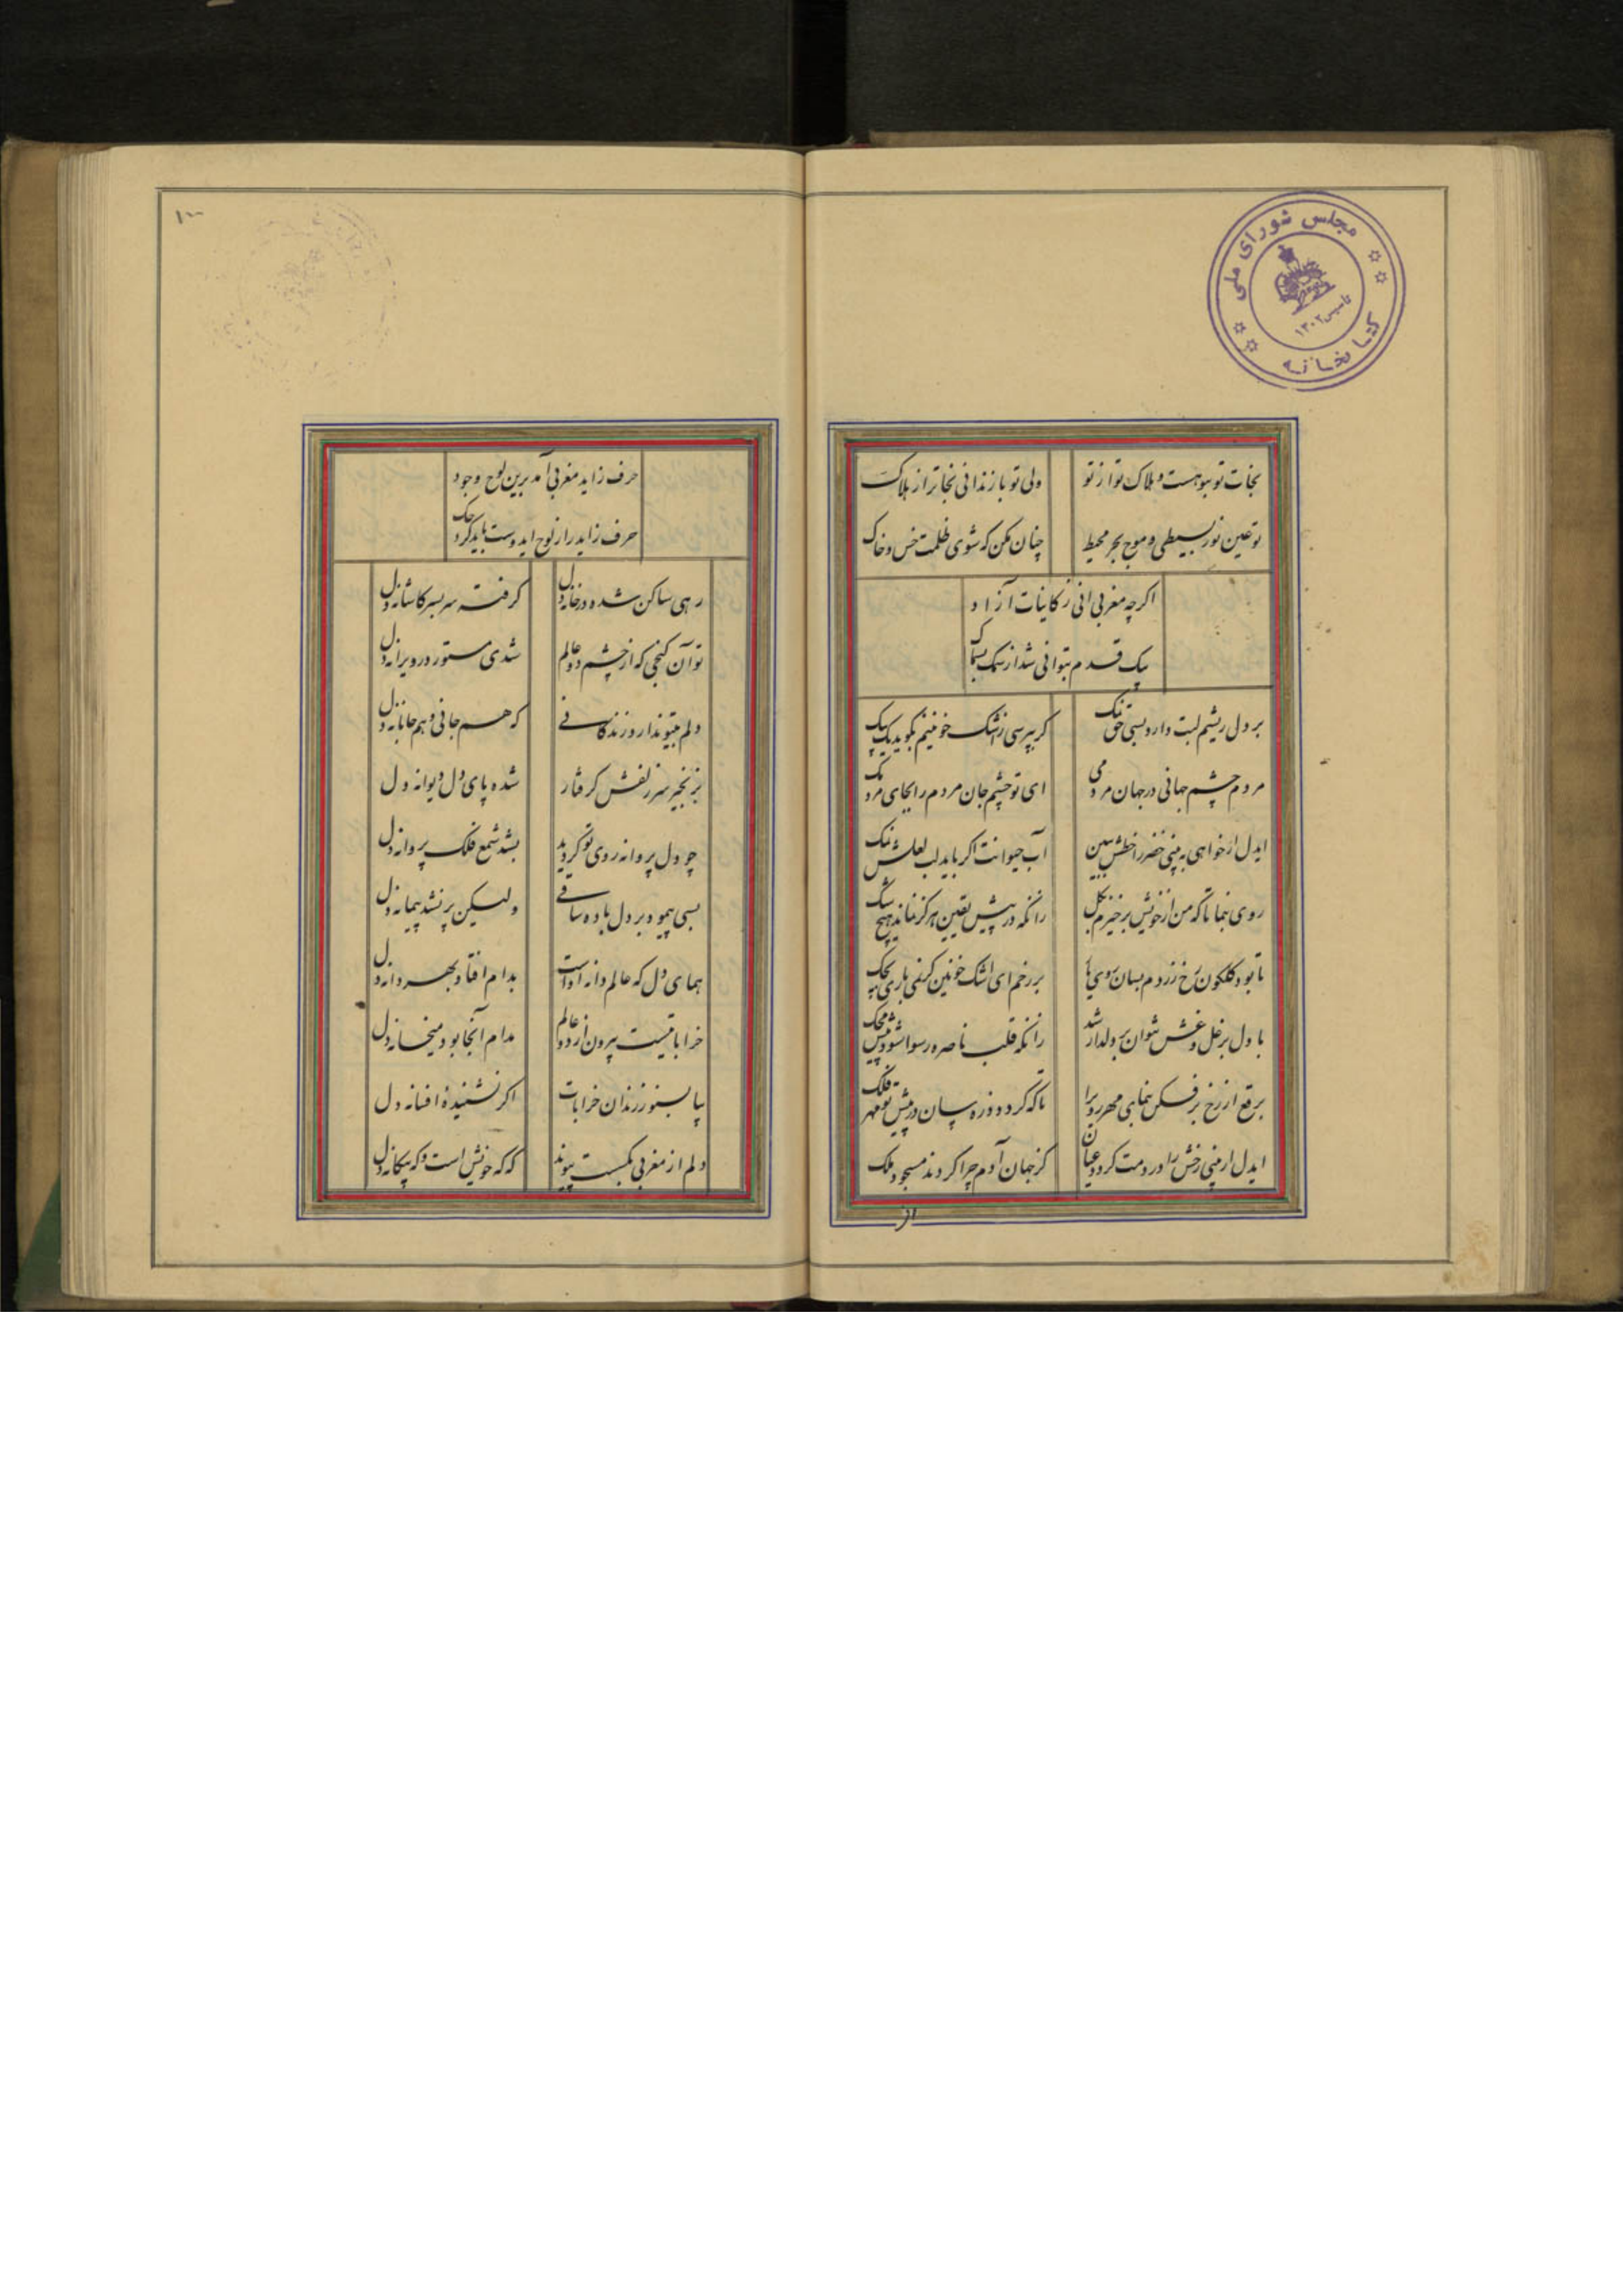 مجلس شورای ملی
کتابخانه
تاسیس ۱۳۰۲
نجات تو بتو هست و هلاک تو از تو
ولی تو باز ندانی نجاتر از هلاک
تو عین نور بسیطی و موج بحر محیط
چنان مکن که شوی ظلمت خس و خاک
اکرچه مغربی انی ز کاینات آزاد
بیک قدم بتوانی شد از سمک بسماک
بر دل ریشم لبت دارد بسی حق نمک
کر بپرسی ز اشک خونینم بکوید یک بیک
مردم چشم جهانی در جهان مردمی
ای تو چشم جان مردم را بجای مردمک
ایدل ار خواهی به بینی خضر را خطش ببین
آب حیوانت اکر باید لب لعلش نمک
روی بنما تا که من از خویش برخیزم بکل
زانکه در پیش یقین هرکز نماند هیچ شک
تا بود کلکون رخ زردم بسان روی
بر رخم ای اشک خونین کر نمی باری بچک
با دل پر غل و غش نتوان بر دلدار شد
زانکه قلب ناصره رسوا شود پیش محک
برقع از رخ برفکن بنمای مهر روی را
تا که کردد ذره سان در پیش تو مهر فلک
ایدل ار بینی رخش را در دمت کردد عیان
کز جهان آدم چرا کردند مسجود ملک
از
۱۰۰
حرف زاید مغربی آمد برین لوح وجود
حرف زاید را ز لوح ایدوست باید کرد حک
زهی ساکن شده در خانه دل
کرفته سر بسر کاشانه دل
تو آن کنجی که از چشم دو عالم
شدی مستور در ویرانه دل
دلم بیتو ندارد زندکانی
که هم جانی و هم جانانه دل
بزنجیر سر زلفش کرفتار
شده پای دل دیوانه دل
چو دل پروانه روی تو کردید
بشد شمع فلک پروانه دل
بسی پیمود بر دل باده ساقی
ولیکن پر نشد پیمانه دل
همای دل که عالم دانه اوست
بدام افتاد بهر دانه دل
خراباتیست بیرون از دو عالم
مدام آنجا بود میخانه دل
بیا بشنو ز رندان خرابات
اکر نشنیدهٔ افسانه دل
دلم از مغربی بکسست پیوند
که که خویش است و که بیکانه دل